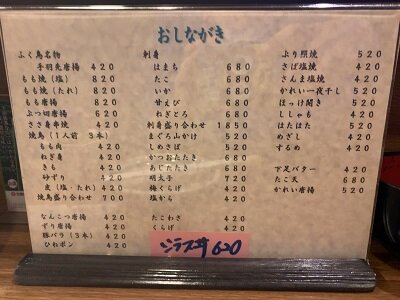 おしながき
ふく鳥名物
手羽先唐揚 420
もも焼(塩) 820
もも焼(たれ) 820
もも唐揚 820
ぶつ切唐揚 620
ささ身串焼 420
焼鳥(1人前 3本)
もも肉 420
ねぎ身 420
きも 420
砂ずり 420
皮(塩・たれ) 420
焼鳥盛り合わせ 700
なんこつ唐揚 420
手羽唐揚 420
豚バラ(3本) 420
ひねポン 420
刺身
はまち 680
たこ 680
いか 680
甘えび 680
ねぎとろ 680
刺身盛り合わせ 1850
まぐろ山かけ 680
しめさば 580
かつおたたき 680
あじたたき 680
明太子 520
梅くらげ 420
塩から 420
たこわさ 420
くらげ 420
ジラス丼 620
ぶり照焼 520
さば塩焼 520
さんま塩焼 520
かれい一夜干し 520
ほっけ開き 520
ししゃも 420
はたはた 520
めざし 420
するめ 420
下足バター 420
たこ天 680
かれい唐揚 520